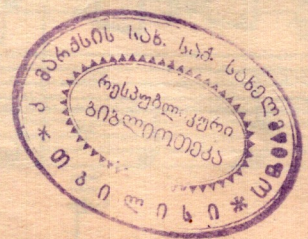 კ. მარქსის სახ. საქ. სახელმწიფო
რესპუბლიკური
ბიბლიოთეკა
* თბილისი *